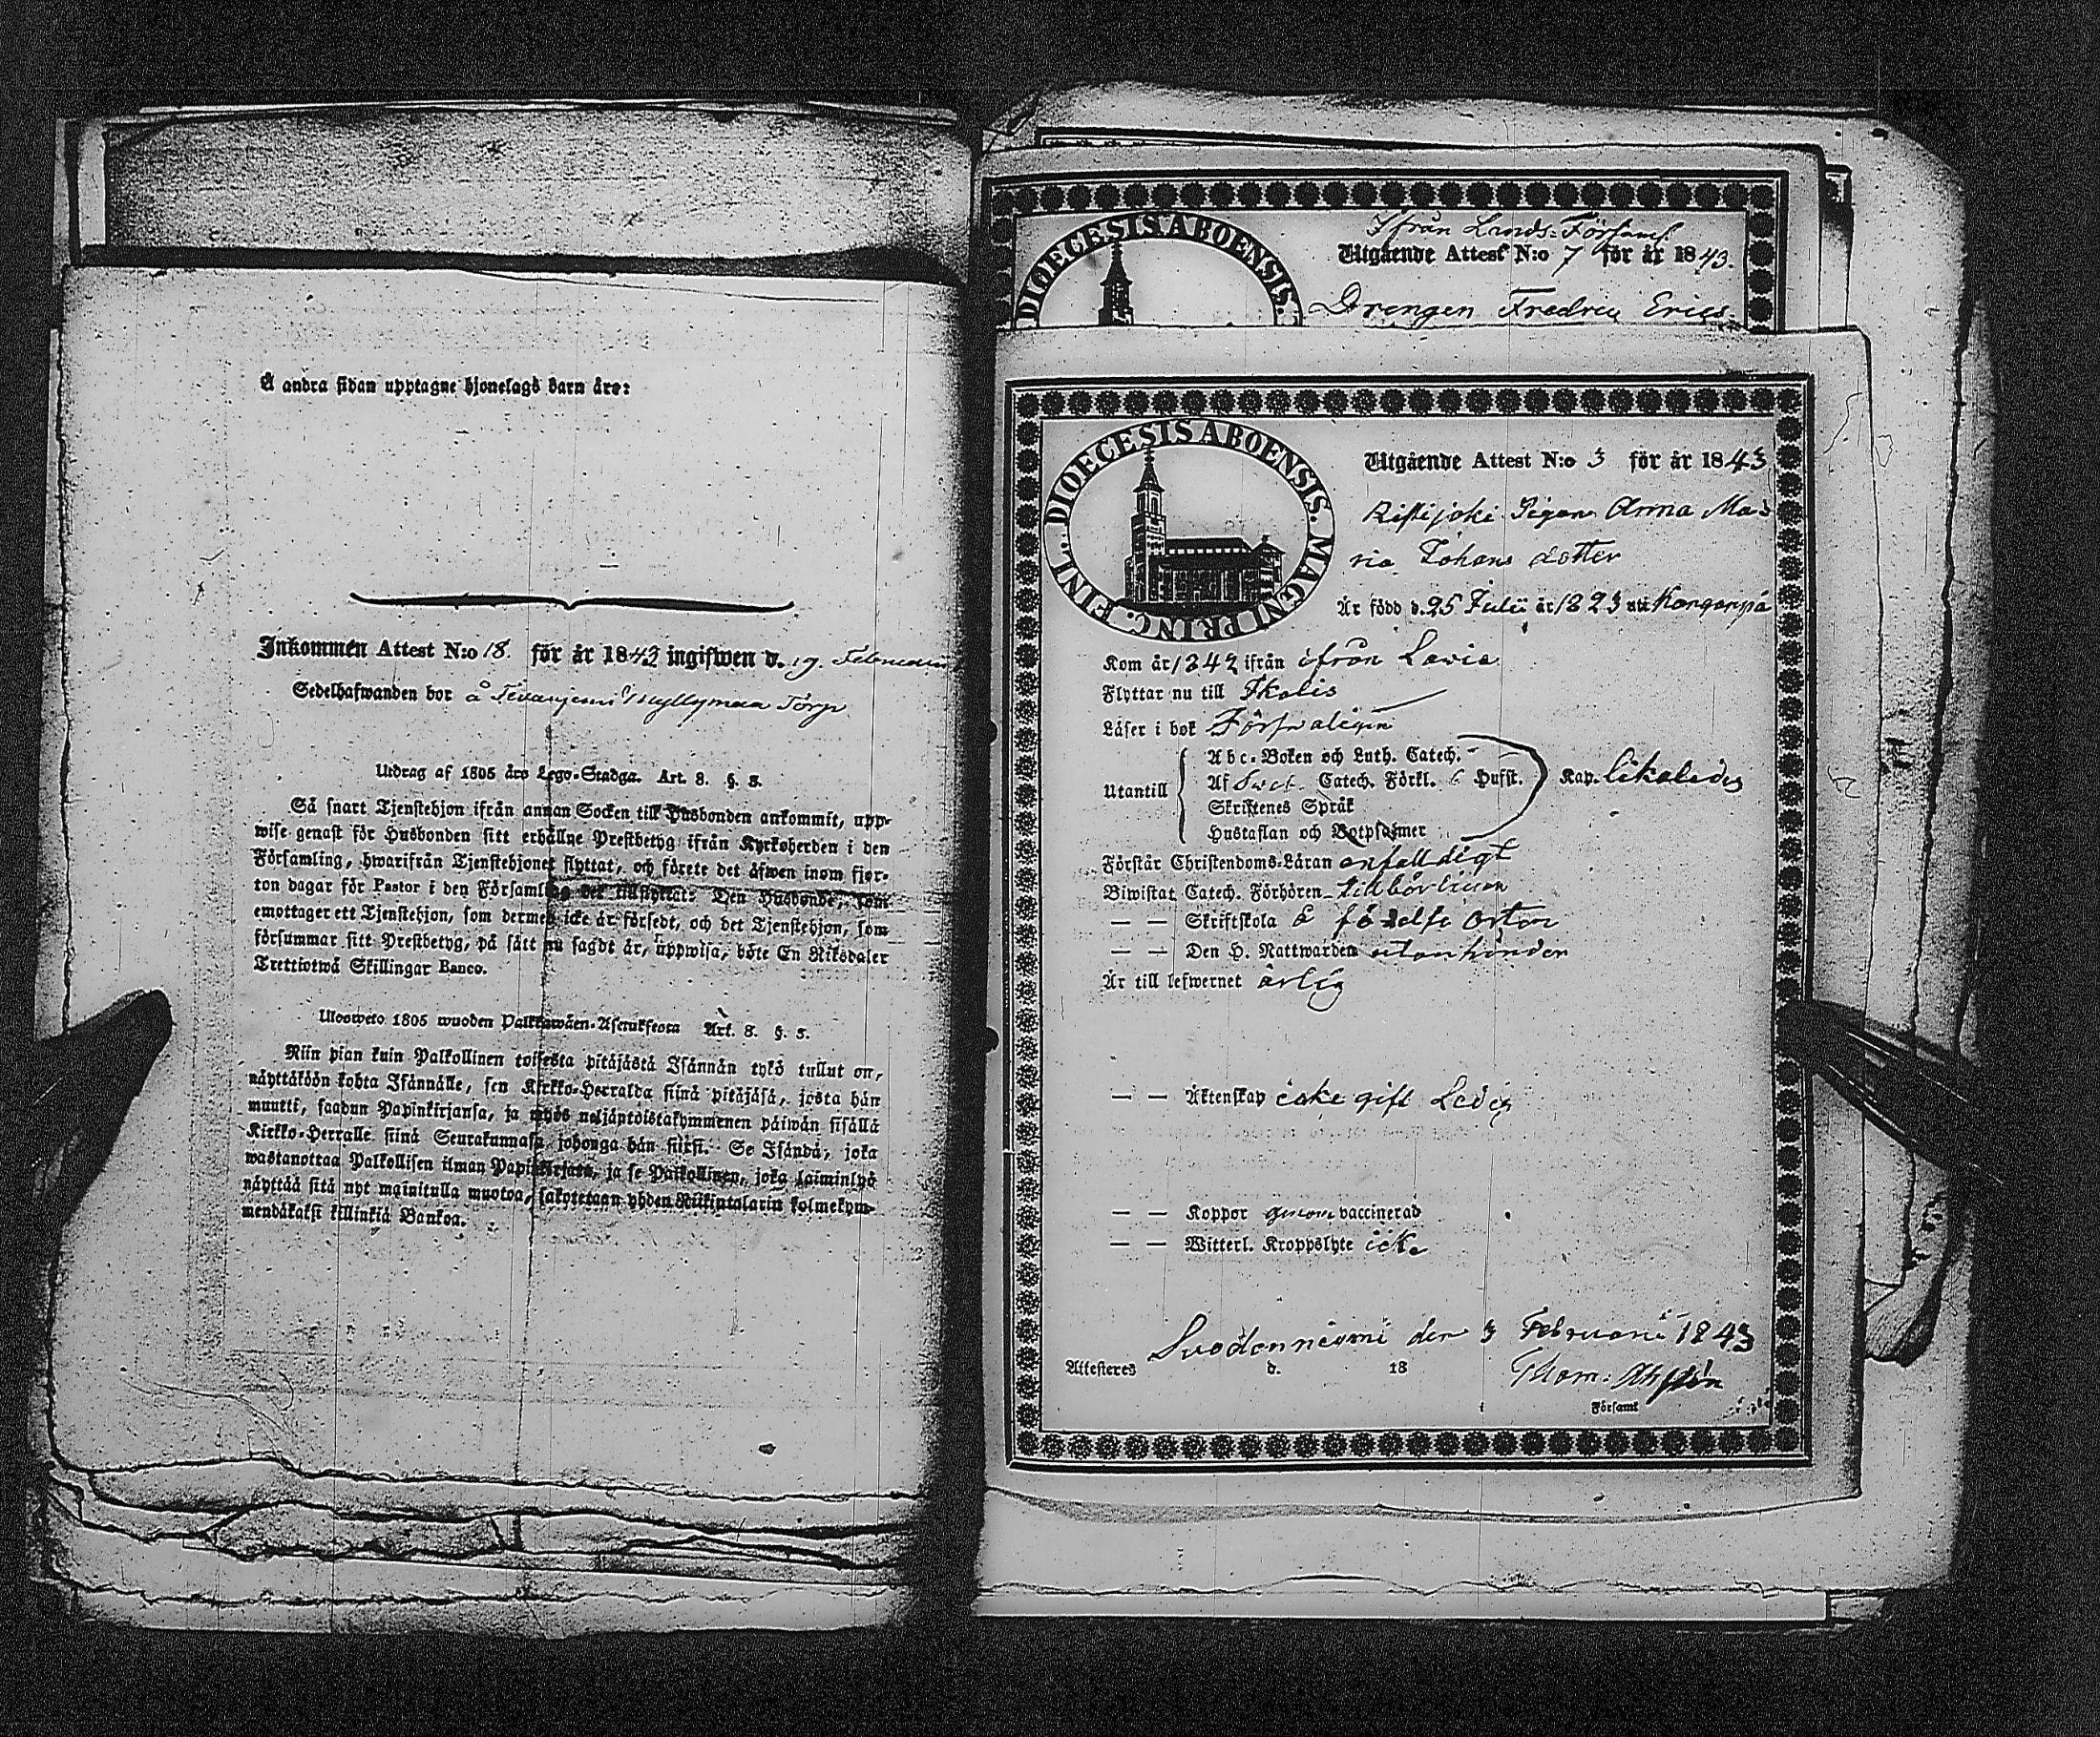 Å andra sidan upptagne hjonelags barn äro:
Inkommen Attest N:o 18. för år 1843 ingifwen d. 19. Februarii
Sedelhafwanden bor å Myllymaa Torp
Utdrag af 1805 års Lego-Stadga. Art. 8. §. 5.
Så snart Tjenstehjon ifrån annan Socken till Husbonden ankommit, upp-
wise genast för Husbonden sitt erhållne Prestbetyg ifrån Kyrkoherden i den
Församling, hwarifrån Tjenstehjonet flyttat, och förete det äfwen inom fjor-
ton dagar för Pastor i den Församling det tillflyttat. Den Husbonde, som
emottager ett Tjenstehjon, som dermed icke är försedt, och det Tjenstehjon, som
försummar sitt Prestbetyg, på sätt nu sagdt är, uppwisa, böte En Riksdaler
Trettiotwå Skillingar Banco.
Ulosweto 1805 wuoden Palkkawäen-Asetuksesta Art. 8. §. 5.
Niin pian kuin Palkollinen toisesta pitäjästä Isännän tykö tullut on,
näyttäköön kohta Isännälle, sen Kirkko-Herralda siinä pitäjäsä, josta hän
muutti, saadun Papinkirjansa, ja myös neljäntoistakymmenen päiwän sisällä
Kirkko-Herralle siinä Seurakunnasa, johonga hän siirsi. Se Isändä, joka
wastanottaa Palkollisen ilman Papinkirjata, ja se Palkollinen, joka laiminlyö
näyttää sitä nyt mainitulla muotoa, sakotetaan yhden Riikintalarin kolmekym-
mendäkaksi killinkiä Bankoa.
Ifrån Lands-Församl
DIOECESIS ABOENSIS.
Utgående Attest N:o 7 för år 1843.
Drengen Fredric Erics-
DIOECESIS ABOENSIS. MAGNI PRINC. FINL.
Utgående Attest N:o 3 för år 1843
Ristijoki Pigan Anna Ma-
ria Johans dotter
Är född d. 25 Julii år 1823 uti Kanganpä
Kom år 1842 ifrån ifrån Lavia
Flyttar nu till Ikalis
Läser i bok Försvarligen
Utantill
Abc-Boken och Luth. Catech.
Af Catech. Förkl. 6 Hufst.
Skriftenes Språk
Hustaflan och Botpsalmer
Kap. likaledes
Förstår Christendoms-Läran enfalldigt
Biwistat Catech. Förhören tillbörligen
— — Skriftskola å födelse orten
— — Den H. Nattwarden utan hinder
Är till lefwernet ärlig
— — Äktenskap icke gift Ledig
— — Koppor genom vaccinerad
— — Witterl. Kroppslyte icke
Suodenniemi den 3 Februarii 1843
Attesteres d. 18
Thom:
i Församl